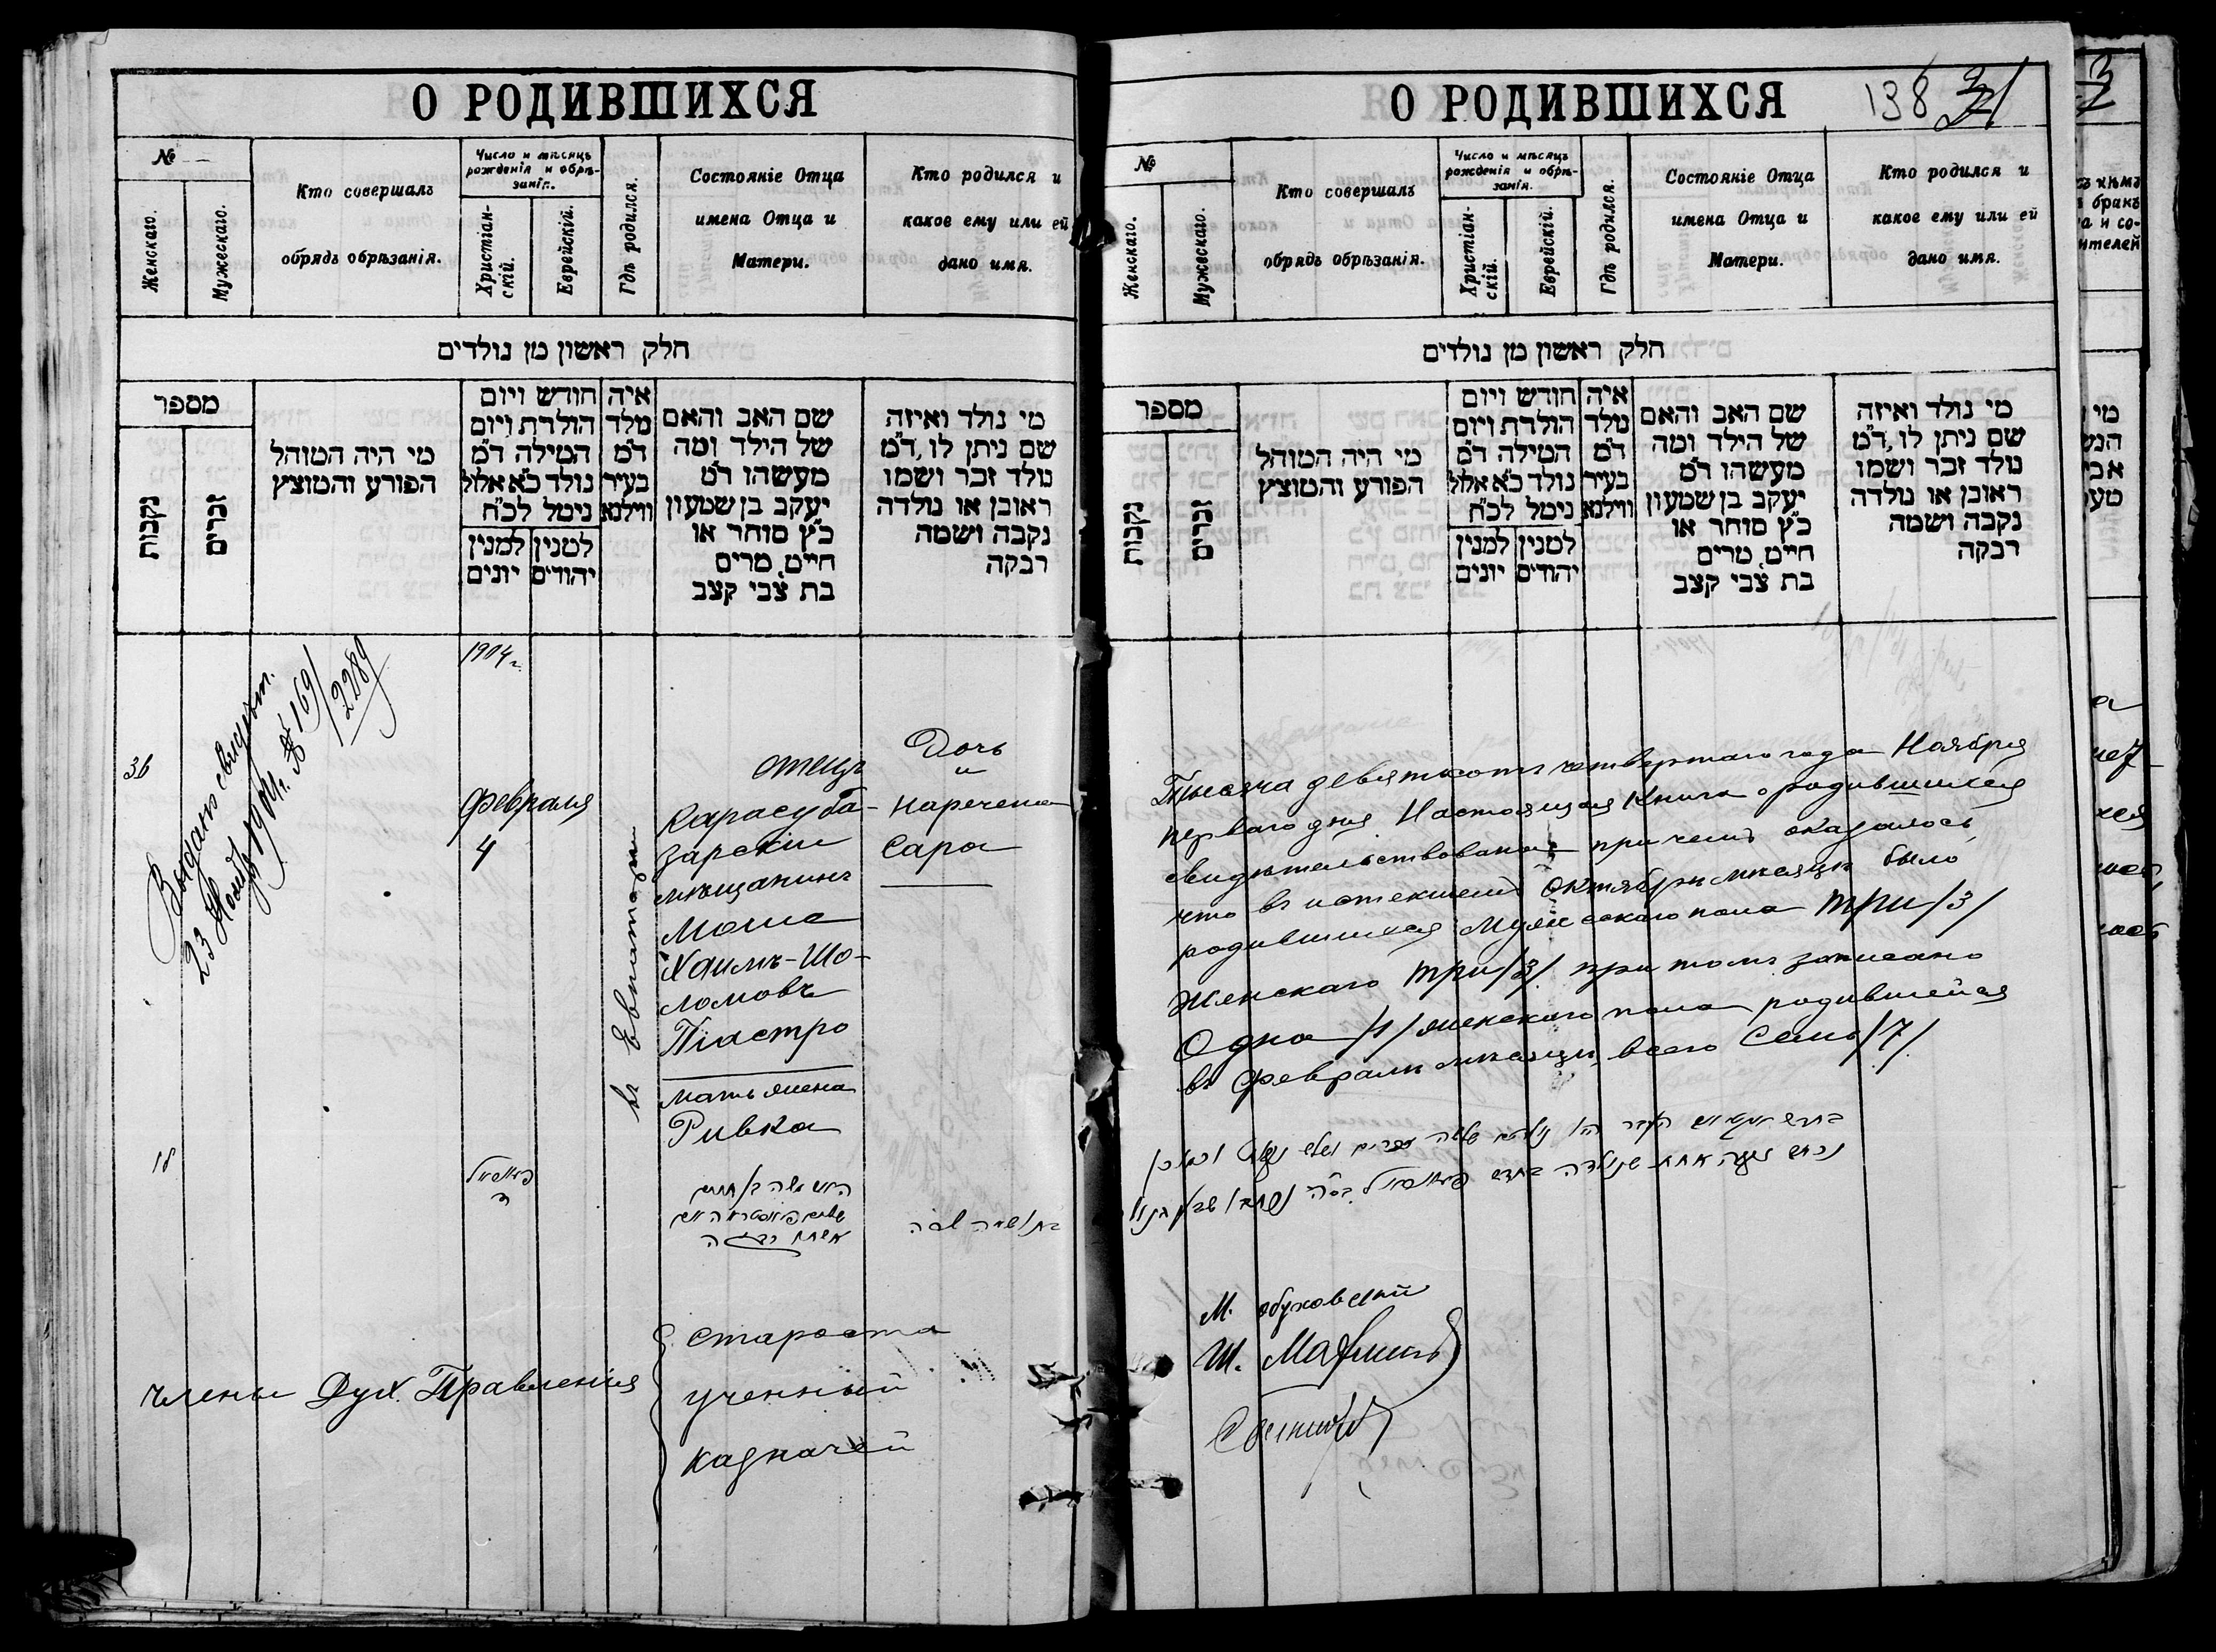 О РОДИВШИХСЯ
№
Женскаго.
Мужескаго.
Кто совершалъ
обрядъ обрѣзанія.
Число и мѣсяцъ
рожденія и обрѣ-
занія.
Христіан-
скій.
Еврейскій.
Гдѣ родился.
Состояніе Отца
имена Отца и
Матери.
Кто родился и
какое ему или ей
дано имя.
חלק ראשון מן נולדים
מספר
נקבות
זכרים
מי היה המוהל
הפורע והמוצץ
חודש ויום
הולדת ויום
המילה ד״מ
נולד כ״א אלול
ניטל לכ״ח
למנין יונים
למנין יהודים
איה
מלד
ד״מ
בעיר
ווילנא
שם האב והאם
של הילד ומה
מעשהו ד״מ
יעקב בן שמעון
כ״ץ סוחר או
חייט, מרים
בת צבי קצב
מי נולד ואיזה
שם ניתן לו, ד״מ
נולד זכר ושמו
ראובן או נולדה
נקבה ושמה
רבקה
Выданъ свидѣт.
23 Нояб. 1904 г. № 169/
2289
1904 г.
36
Февраля
4
въ Евпаторіи
отецъ
Карасуба-
зарскій
мѣщанинъ
Моше
Хаимъ-Шо-
ломовъ
Піастро
мать жена
Ривка
Дочь
и
наречена
Сара
Члены Дух. Правленія
Староста
ученный
казначей
О РОДИВШИХСЯ
138
№
Женскаго.
Мужескаго.
Кто совершалъ
обрядъ обрѣзанія.
Число и мѣсяцъ
рожденія и обрѣ-
занія.
Христіан-
скій.
Еврейскій.
Гдѣ родился.
Состояніе Отца
имена Отца и
Матери.
Кто родился и
какое ему или ей
дано имя.
חלק ראשון מן נולדים
מספר
נקבות
זכרים
מי היה המוהל
הפורע והמוצץ
חודש ויום
הולדת ויום
המילה ד״מ
נולד כ״א אלול
ניטל לכ״ח
למנין יונים
למנין יהודים
איה
מלד
ד״מ
בעיר
ווילנא
שם האב והאם
של הילד ומה
מעשהו ד״מ
יעקב בן שמעון
כ״ץ סוחר או
חייט, מרים
בת צבי קצב
מי נולד ואיזה
שם ניתן לו, ד״מ
נולד זכר ושמו
ראובן או נולדה
נקבה ושמה
רבקה
Тысяча девятьсотъ четвертаго года Ноября
перваго дня. Настоящая Книга о родившихся
свидѣтельствована причемъ оказалось,
что въ истекшемъ Октябрѣ мѣсяцѣ было
родившихся Мужескаго пола три /3/
Женскаго три /3/ при томъ записано
Одна /1/ женскаго пола родившейся
въ Февралѣ мѣсяцѣ, всего Семь /7/.
М. Обуховскій
Ш.